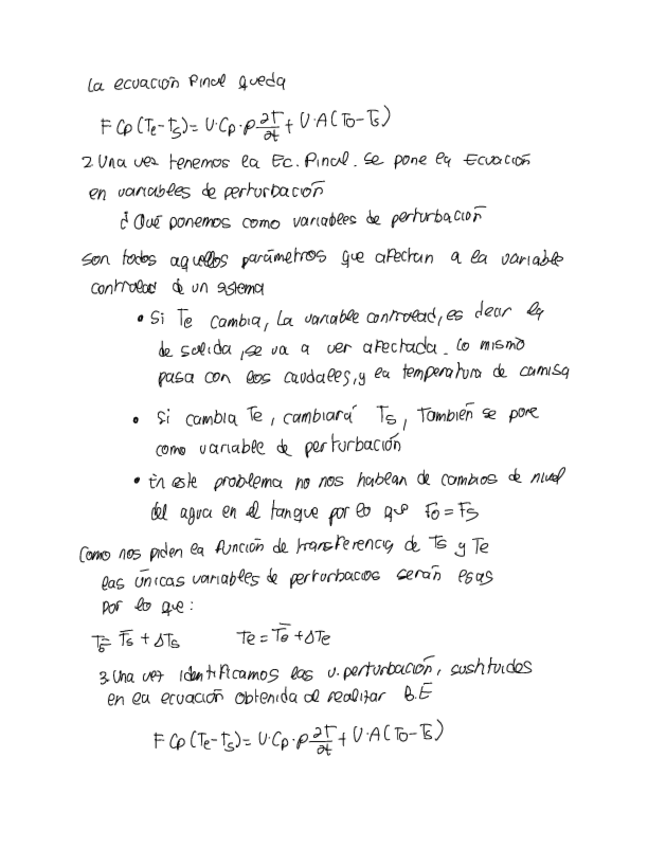 La ecuación Final queda
F Cp (Te-Ts)= V·Cp·ρ ∂T/∂t + U·A(To-Ts)
2. Una vez tenemos la Ec. Final. Se pone la Ecuación
en variables de perturbación
¿Qué ponemos como variables de perturbación
Son todos aquellos parámetros que afectan a la variable
controlad de un sistema
• Si Te cambia, La variable controlad, es decir la
de salida, se va a ver afectada. Lo mismo
pasa con los caudales, y la temperatura de camisa
• Si cambia Te, cambiará Ts, También se pone
como variable de perturbación
• En este problema no nos hablan de cambios de nivel
del agua en el tanque por lo que Fo = Fs
Como nos piden la función de transferencia de Ts y Te
las únicas variables de perturbacios serán esas
por lo que:
Ts= T̄s + ΔTs Te = T̄e + ΔTe
3. Una vez identificamos las v. perturbación, sustituidos
en la ecuación obtenida al realizar B.E
F Cp (Te-Ts)= V·Cp·ρ ∂T/∂t + U·A(To-Ts)